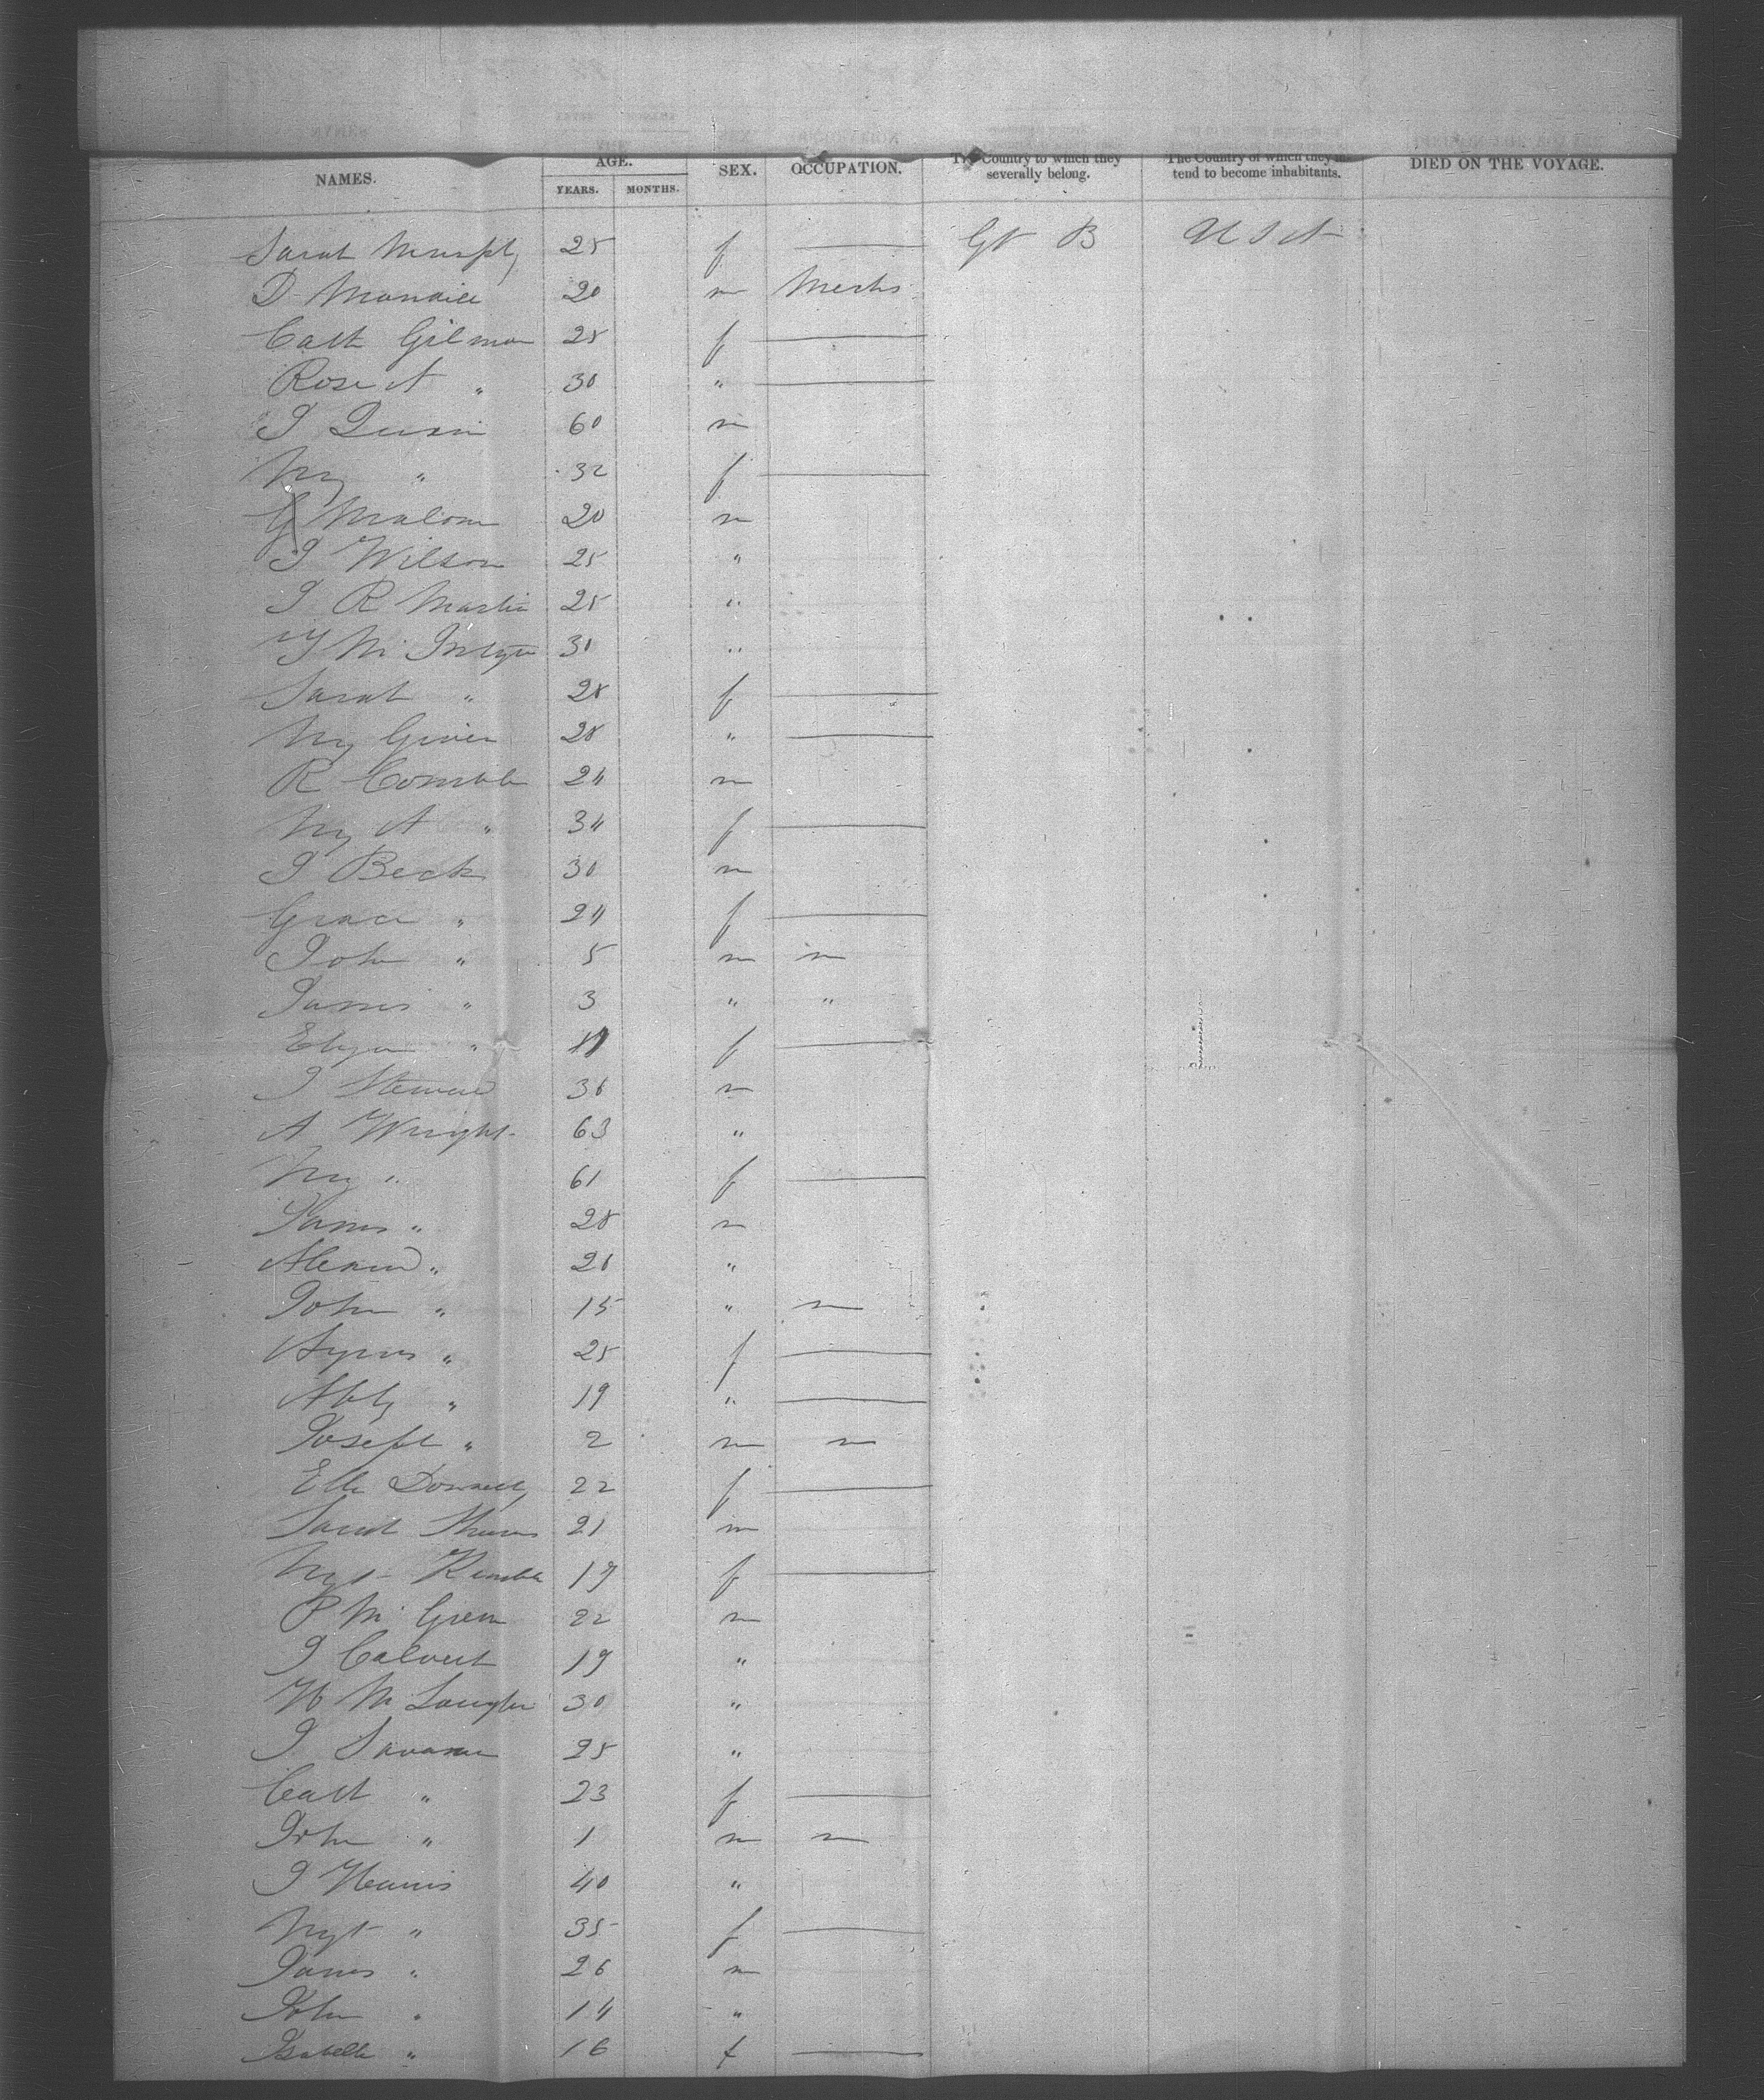 NAMES. AGE. YEARS. MONTHS. SEX. OCCUPATION. The Country to which they severally belong. The Country of which they in- tend to become inhabitants. DIED ON THE VOYAGE.
Sarah Murphy 25 f — Gt B U S A
D 20 m Mechs
Cath Gilmon 25 f —
Rose A " 30 " —
J Quinn 60 m
My " 32 f —
G Malone 20 m
J Wilson 25 "
J R Martin 25 "
Mc Intyre 30 "
Sarah " 28 f —
My 28 " —
R 24 m
My A " 34 f —
J Beck 30 m
Grace " 24 f —
John " 5 m
James " 3 " "
Eliza " f —
J Steward 36 m
A Wright 63 "
My " 61 f —
James " 28 m
" 26 "
John " 15 "
Agnes " 25 f —
Abby " 19 " —
Joseph " 2 m
Elln Donnelly 22 f —
Sarah 21 m
Mgt 19 f —
P Mc 22 m
J Calvert 19 "
Mc 30 "
J 25 "
Cath " 23 f —
John " 1 m
J 40 "
Mgt " 35 f —
James " 26 m
John " 14 "
Isabella " 16 f —